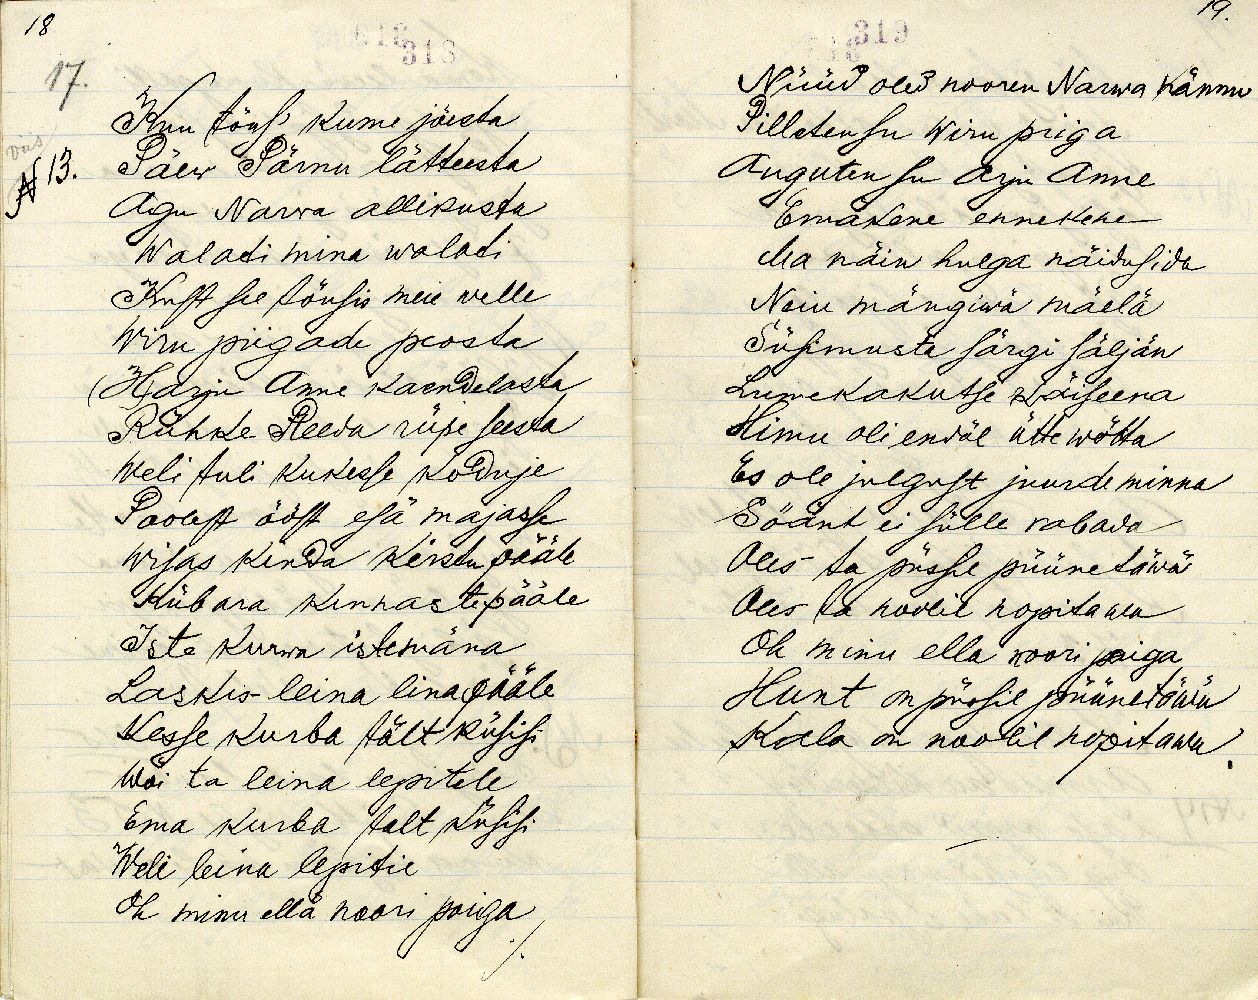 18
318
17.
Kuu tõus' kume jõesta
viis
№ 13.
Päew Pärnu lätteesta
Agu Narwa allikusta
Walati mina walati
Kust see tõusis meie welle
Wiru piigade peosta
(Harju Anne kaendelasta
Rühke Reeda rüpe seesta
Weli tuli kukesse koduje
Poolest ööst esä majasse
Wisas kinda kirstu pääle
Kübara kinnaste pääle
Iste kurwa istemäna
Laskis leina lina pääle
Kesse kurba tält küsisi
Wai ta leina lepitele
Ema kurba talt küsisi
Weli leina lepitie
Oh minu ellä noori poiga
./.
19.
319
Nüüd oled nooren Narwa kännu
Pilleten su Wiru piiga
Auguten su Arju Anne
Emakene ennekene
Ma näin hulga näidusida
Neiu mängiwä mäelä
Süsimusta särgi säljän
Lumekakutse käiseena
Himu oli endäl ütte wõtta
Es ole julgust juurde minna
Söänt ei sülle rabada
Oles ta püssil püünetäwä
Oles ta noolil nopitawa
Oh minu ella noori poiga
Hunt on püssil püünetäwä
Kala on noolil nopitawa.